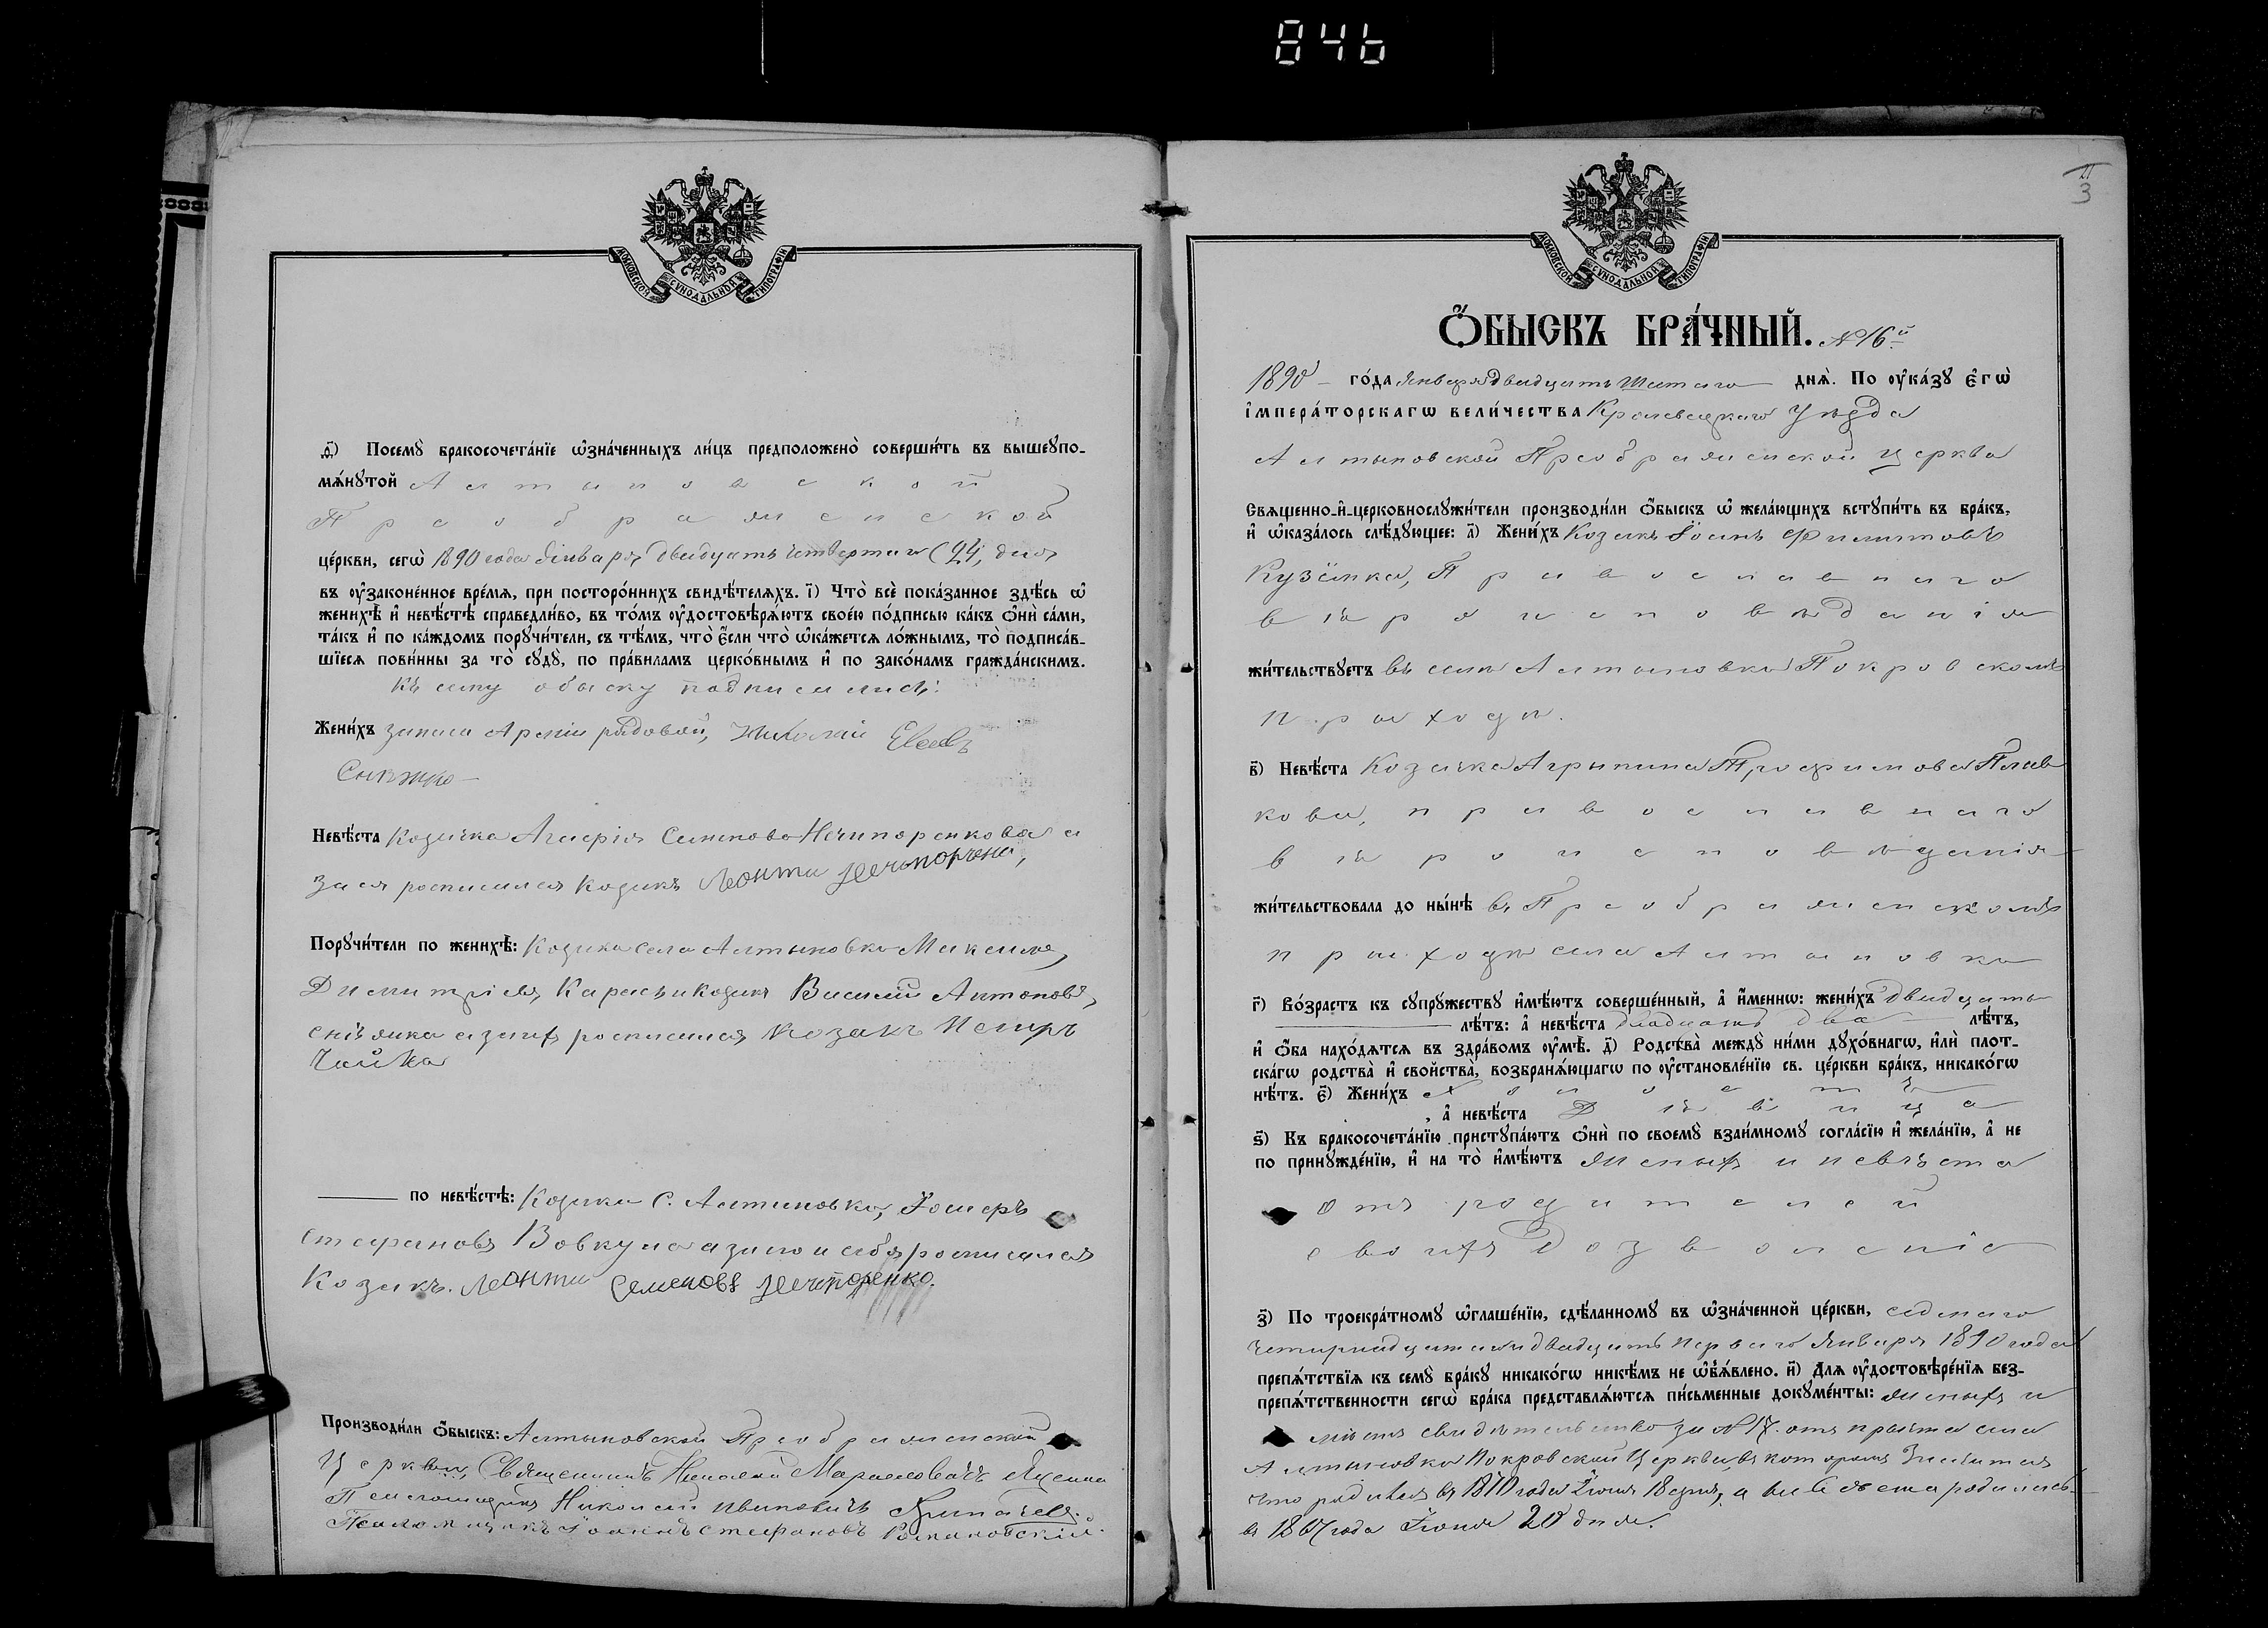 846
МОСКОВСКОЙ СѴНОДАЛЬНОЙ ТИПОГРАФІИ
ѳ҃) Посемꙋ̀ бракосочета́нїе ѡ҆зна́ченныхъ ли́цъ предположено̀ соверши́ть въ вышеꙋпо-
мѧ́нꙋтой Алтыновской
Преображенской
це́ркви, сегѡ̀ 1890 года Января двадцать четвертаго (24) дня
въ ᲂу҆зако́ненное вре́мѧ, при посторо́ннихъ свидѣ́телѧхъ. і҃) Что̀ всѐ пока́занное здѣ́сь ѡ҆
женихѣ̀ и҆ невѣ́стѣ справедли́во, въ то́мъ ᲂу҆достовѣрѧ́ютъ свое́ю по́дписью ка́къ ѻ҆нѝ са́ми,
та́къ и҆ по ка́ждомъ порꙋчи́тели, съ тѣ́мъ, что̀ є҆́сли что̀ ѡ҆ка́жетсѧ ло́жнымъ, то̀ подписа́в-
шїесѧ пови́нны за то̀ сꙋдꙋ̀, по пра́виламъ церко́внымъ и҆ по зако́намъ гражда́нскимъ.
Къ сему обыску подписались:
Жени́хъ запаса Арміи рядовой, Николай Евсевъ
Снѣжко
Невѣ́ста Козачка Агафія Семенова Нечипоренкова а
за ея росписался козакъ Леонти Нечипоренко,
Порꙋчи́тели по женихѣ̀: Козики села Алтыновки Максимъ
Димитріевъ Карась и Козакъ Василій Антоновъ
а за нихъ росписался Козакъ Петръ
Чайка
по невѣ́стѣ: Козаки с. Алтыновки, Іосифъ
Стефановъ Вовкула а за него и себя росписался
Козакъ. Леонти Семеновъ Нечипоренко.
Производи́ли ѻ҆́быскъ: Алтыновской Преображенской
Церкви, Священникъ Николай
Псаломщикъ Николай Ивановичъ
Псаломщикъ Іоаннъ Стефановъ Романовскій.
3
МОСКОВСКОЙ СѴНОДАЛЬНОЙ ТИПОГРАФІИ
Ѻ҆́БЫСКЪ БРА́ЧНЫЙ. № 16й
1890 го́да Января двадцать шестаго днѧ̀. По ᲂу҆ка́зꙋ є҆гѡ̀
і҆мпера́торскагѡ вели́чества Кролевецкаго Уѣзда
Алтыновской Преображенской церкви
Свѧщенно-и҆-церковнослꙋжи́тели производи́ли ѻ҆́быскъ ѡ҆ жела́ющихъ встꙋпи́ть въ бра́къ,
и҆ ѡ҆каза́лось слѣ́дꙋющее: а҃) Жени́хъ Козакъ Іоанъ Филиповъ
Кузёмка, Православнаго
вѣроисповѣданія
жи́тельствꙋетъ въ селѣ Алтыновкѣ Покровскомъ
приходѣ.
в҃) Невѣ́ста Козачка Агрипина Трофимова Плав
кова, православнаго
вѣроисповѣданія
жи́тельствовала до ны́нѣ въ Преображенскомъ
приходѣ села Алтыновки
г҃) Во́зрастъ къ сꙋпрꙋ́жествꙋ и҆мѣ́ютъ соверше́нный, а҆ и҆́меннѡ: жени́хъ двадцать
лѣ́тъ: а҆ невѣ́ста двадцать два лѣ́тъ,
и҆ ѻ҆́ба нахо́дѧтсѧ въ здра́вомъ ᲂу҆мѣ̀. д҃) Родства̀ междꙋ̀ ни́ми дꙋхо́внагѡ, и҆лѝ плот-
ска́гѡ родства̀ и҆ сво́йства̀, возбранѧ́ющагѡ по ᲂу҆становле́нїю св. це́ркви бра́къ, никако́гѡ
нѣ́тъ. є҃) Жени́хъ холостъ
, а҆ невѣ́ста Дѣвица
ѕ҃) Къ бракосочета́нїю пристꙋпа́ютъ ѻ҆нѝ по своемꙋ̀ взаи́мномꙋ согла́сїю и҆ жела́нїю, а҆ не
по принꙋжде́нїю, и҆ на то̀ и҆мѣ́ютъ женихъ и невѣста
отъ родителей
своихъ дозволеніе
з҃) По троекра́тномꙋ ѡ҆глаше́нїю, сдѣ́ланномꙋ въ ѡ҆зна́ченной це́ркви, седьмаго
четырнадцатаго и двадцать перваго Января 1890 года
препѧ́тствїѧ къ семꙋ̀ бра́кꙋ никако́гѡ никѣ́мъ не ѡ҆б̾ѧ́влено. и҃) Длѧ ᲂу҆достовѣре́нїѧ без-
препѧ́тственности сегѡ̀ бра́ка представлѧ́ютсѧ пи́сьменные докꙋме́нты: женихъ и
мѣетъ свидѣтельство за № 17 отъ причта села
Алтыновки Покровской Церкви, въ которомъ значится
что родился въ 1870 года Іюня 18 дня, а невѣста родилась
въ 1867 года Іюня 20 дня.